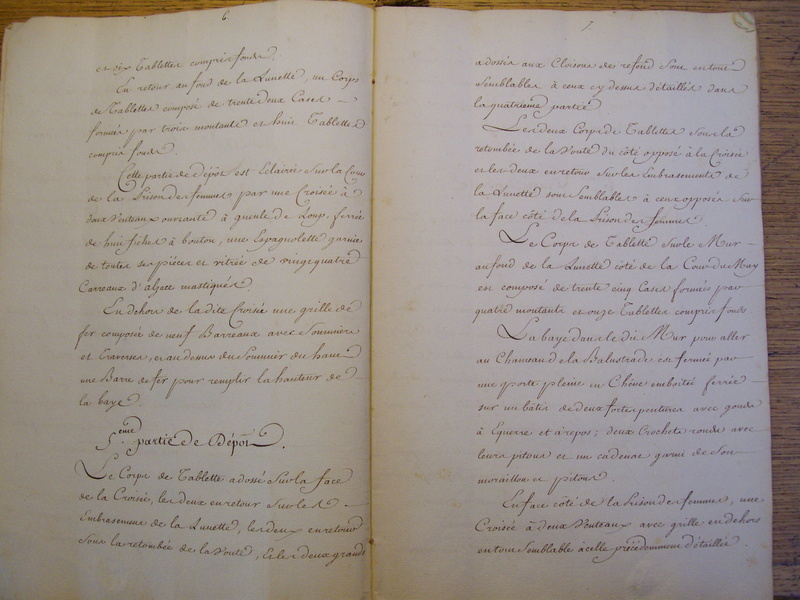 6
et six Tablettes compris fonds.
En retour au fond de la Lunette, un Corps
de Tablettes composé de trente deux Cases
formées par trois montants et huit Tablettes
compris fonds.
Cette partie de dépôt est Eclairée sur la Cour
de la Prison des femmes par une Croisée à
deux Venteaux ouvrante à gueule de Loup, ferrée
de huit fiches à bouton, une Espagnolette garnie
de toutes ses pièces et vitrée de vingt quatre
Carreaux d'alzace mastiqués.
En dehors de la dite Croisée une grille de
fer composée de neuf Barreaux avec Sommiers
et Traverses, et au dessus du Sommier du haut
une Barre de fer pour remplir la hauteur de
la baye.
5.eme partie de Dépôt.
Le Corps de Tablette adossé Sur la face
de la Croisée, les deux en retour Sur les
Embrasements de la Lunette, les deux en retour
Sous la retombée de la Voute, Et les deux grands
7
adossés aux Cloisons de refend Sont en tout
Semblables à ceux cy dessus détaillés dans
la quatrième partie
Les deux Corps de Tablettes Sous la
retombée de la Voute du côté opposé à la Croisée
et les deux en retour Sur les Embrasements de
la Lunette sont Semblables à ceux opposés Sur
la face côté de la Prison des femmes.
Le Corps de Tablette Sur le Mur
au fond de la Lunette côté de la Cour du May
est composé de trente cinq Cases formées par
quatre montants et onze Tablettes compris fonds
La baye dans le dit Mur pour aller
au Chaineau de la Balustrade est fermée par
une porte pleine en Chêne emboitée ferrée
sur un bâtis de deux fortes pentures avec gonds
à Equerre et à repos; deux Crochets ronds avec
leurs pitons et un cadenac garni de Son
moraillon et pitons.
En face côté de la Prison des femmes, une
Croisée à deux Venteaux avec grille en dehors
en tout Semblable à celle précédemment détaillée.